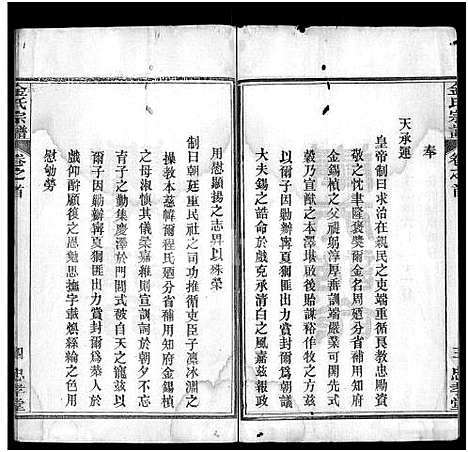 金氏宗譜
卷之首
三 忠孝堂
奉
天承運
皇帝制曰求治在親民之吏端重循良教忠勵資
敬之忱聿隆褒獎爾金名周廼分省補用知府
金錫楨之父褆躬淳厚垂訓端嚴業可開先式
穀乃宣猷之本澤堪啟後貽謀裕作牧之方
以爾子因勦辦寧夏獨匪出力賞封爾為
大夫錫之誥命於戲克承清白之風嘉茲報政
用慰顯揚之志畀以殊榮
制曰朝廷重民社之司功推衍吏臣子凜冰淵之
操教本慈幃爾程氏廼分省補用知府金錫楨
之母淑慎其儀柔嘉維則宣訓詞於朝夕不忘
育子之勤集慶澤於門閭式被自天之寵茲以
爾子因勦辦寧夏獨匪出力賞封爾為恭人於
戲仰酬顧復之恩勉思撫字載煥絲綸之色用
慰劬勞
金氏宗譜
卷之首
四 忠孝堂